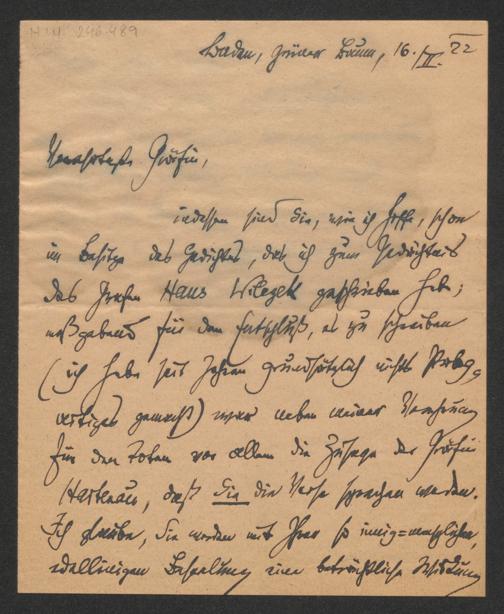 H.I.N. 246.489
Baden, grüner Baum, 16./II. 22
Verehrteste Gräfin,
indessen sind Sie, wie ich hoffe, schon
im Besitze des Gedichtes, das ich zum Gedächtnis
des Grafen Hans Wilczek geschrieben habe;
maßgebend für den Entschluß, es zu schreiben
(ich habe seit Jahren grundsätzlich nichts
artiges gemacht) war neben meiner Verehrung
für den Toten vor allem die Zusage der Gräfin
Hartenau, daß Sie die Verse sprechen werden.
Ich glaube, Sie werden mit Ihrer so innig=menschlichen,
edelsinnigen Beseelung eine beträchtliche Wirkung